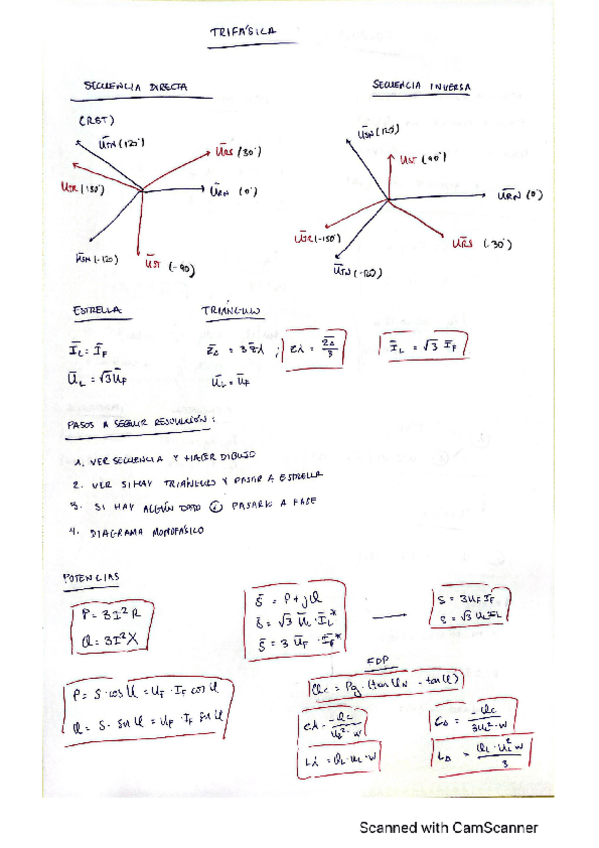 TRIFÁSICA
SECUENCIA DIRECTA
(RST)
ŪTN (120°)
ŪRS (30°)
ŪTR (150°)
ŪRN (0°)
ŪSN (-120)
ŪST (-90)
SECUENCIA INVERSA
ŪSN (120°)
ŪST (90°)
ŪRN (0°)
ŪTR (-150°)
ŪRS (-30°)
ŪTN (-120°)
ESTRELLA
ĪL = ĪF
ŪL = √3 ŪF
TRIÁNGULO
Z̄Δ = 3 Z̄λ ; Z̄λ = Z̄Δ/3
ĪL = √3 ĪF
ŪL = ŪF
PASOS A SEGUIR RESOLUCIÓN:
1. VER SECUENCIA Y HACER DIBUJO
2. VER SI HAY TRIÁNGULO Y PASAR A ESTRELLA
3. SI HAY ALGÚN DATO PASARLO A FASE
4. DIAGRAMA MONOFÁSICO
POTENCIAS
P = 3I²R
Q = 3I²X
S̄ = P + jQ
S̄ = √3 ŪL · ĪL*
S̄ = 3 ŪF · ĪF*
S = 3UF IF
S = √3 UL IL
P = S · cos φ = UF · IF cos φ
Q = S · sen φ = UF · IF sen φ
FDP
Cλ = -Qc / UL² · w
CΔ = -Qc / 3UL² · w
Lλ = QL · UL · w
LΔ = QL · UL² w / 3
Scanned with CamScanner